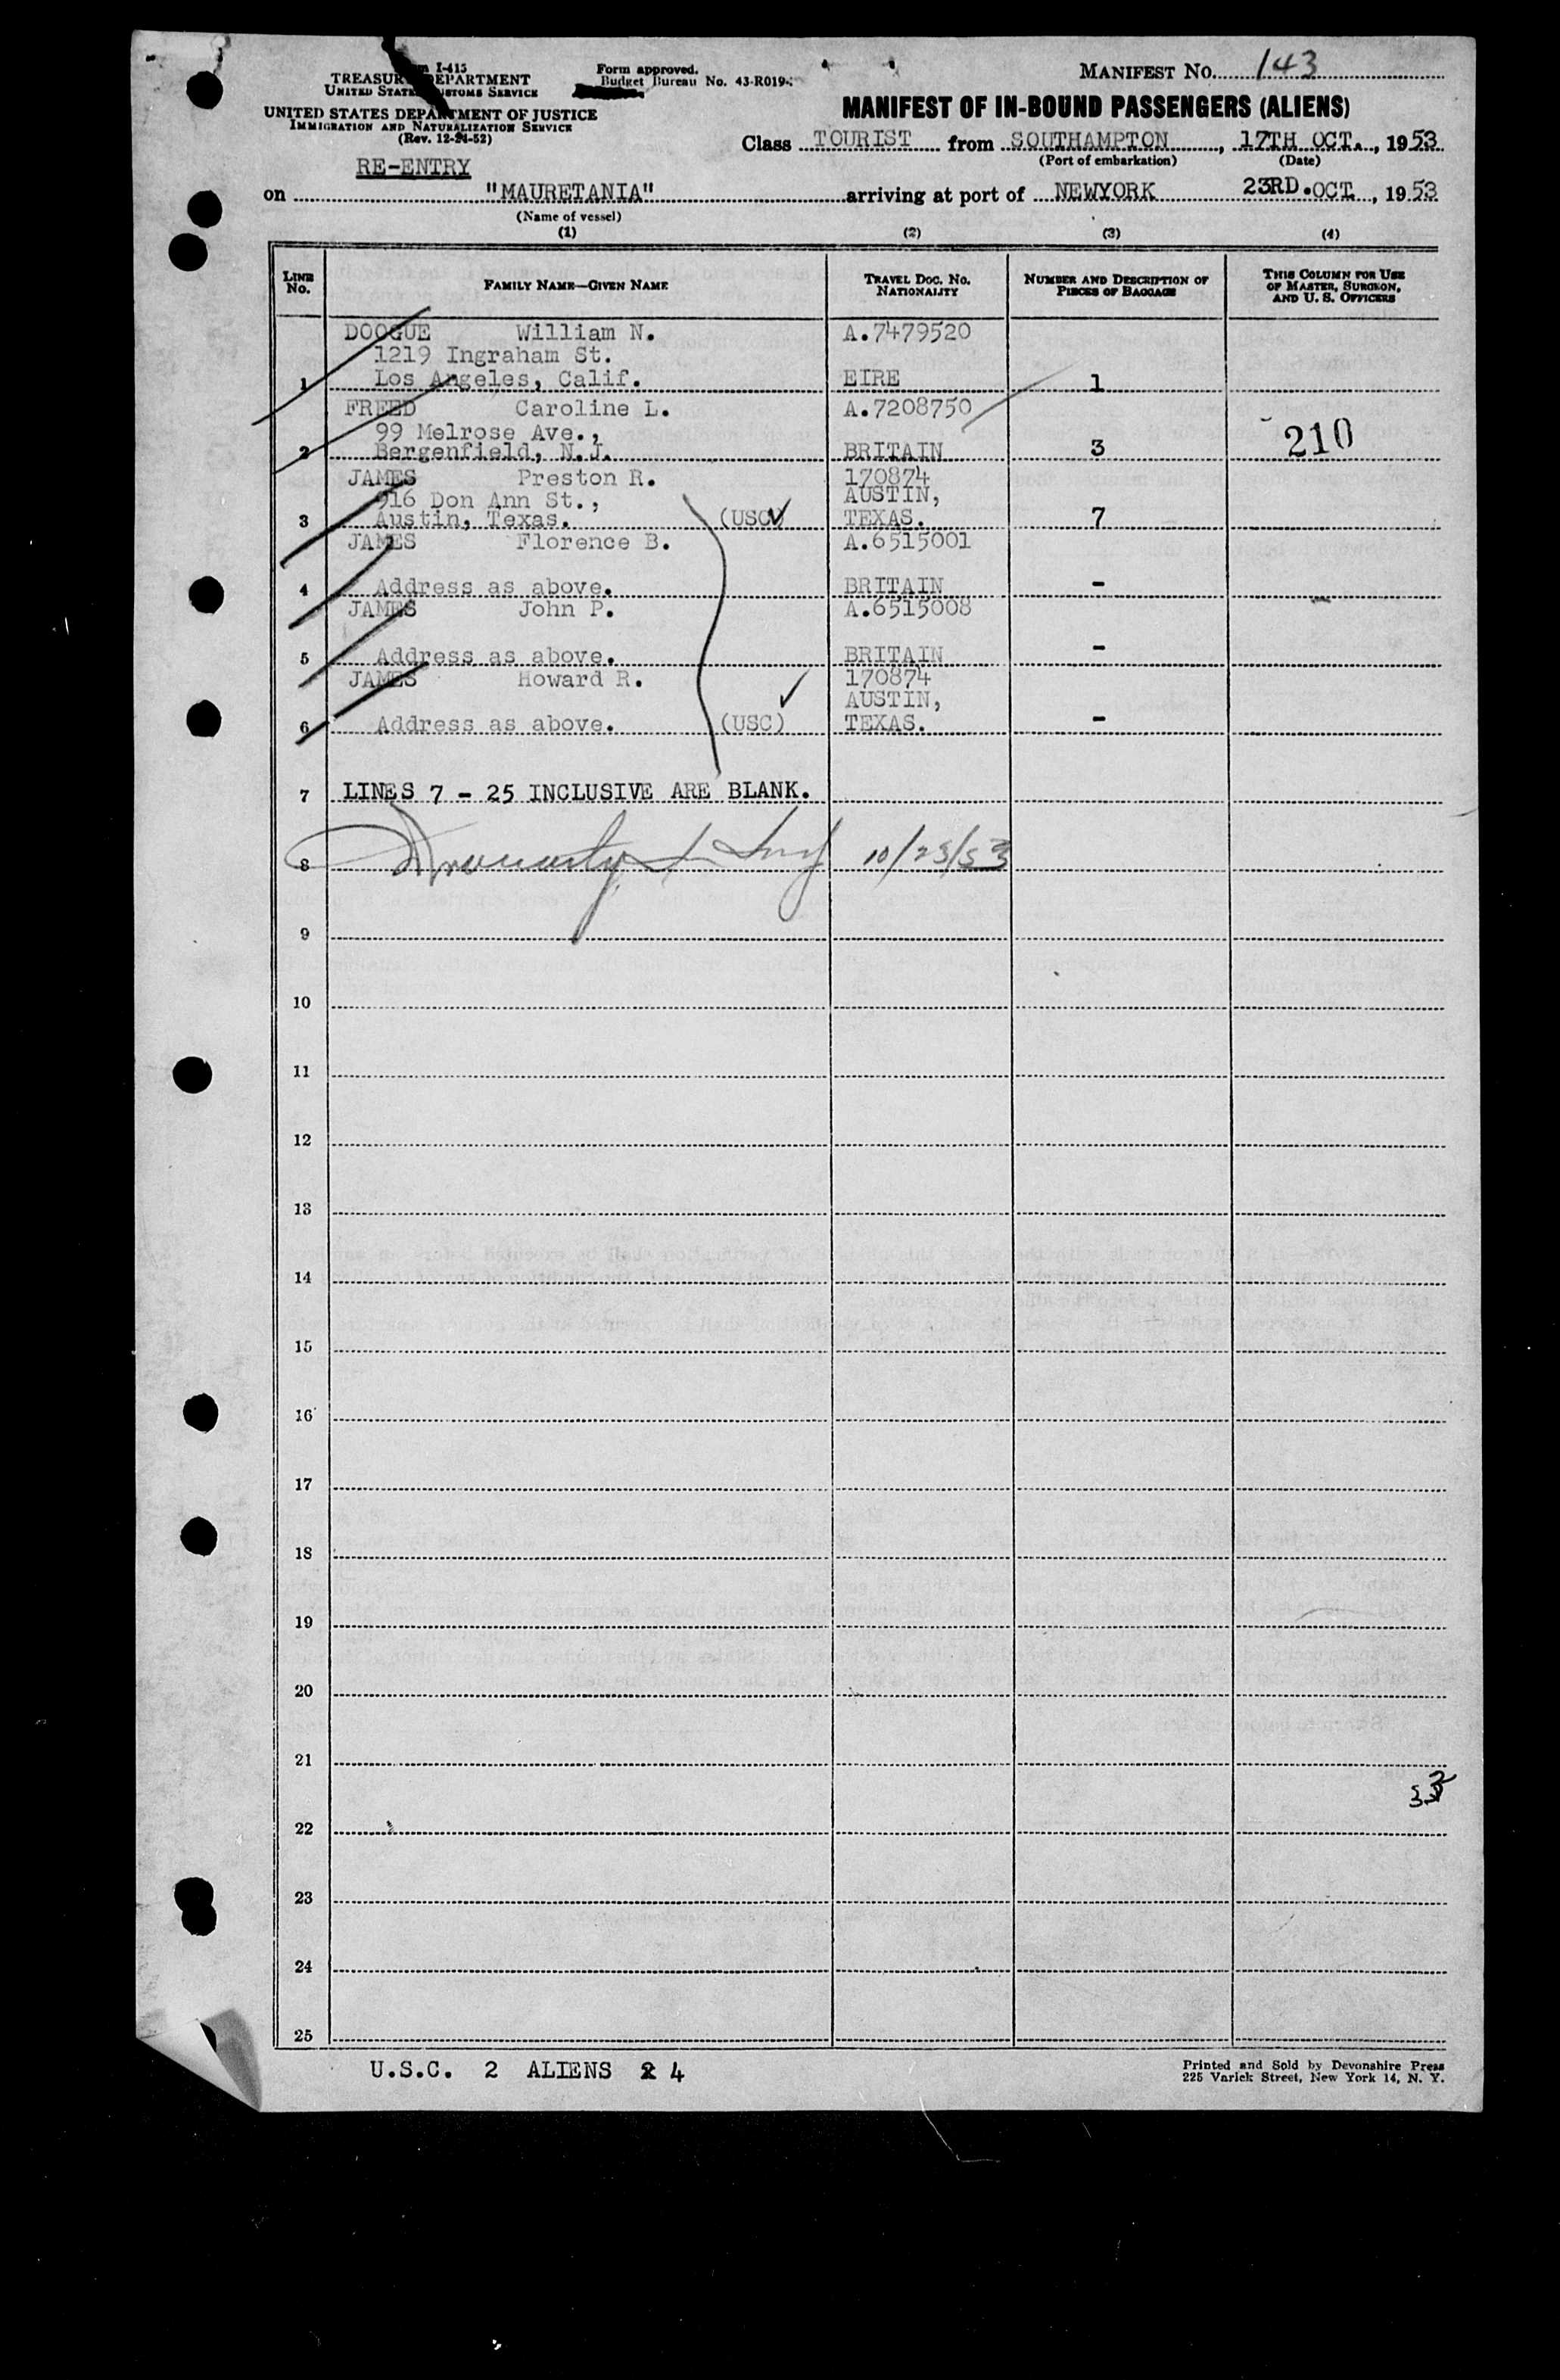 I-415
TREASURY DEPARTMENT
UNITED STATES CUSTOMS SERVICE
UNITED STATES DEPARTMENT OF JUSTICE
IMMIGRATION AND NATURALIZATION SERVICE
(Rev. 12-24-52)
Form approved.
Budget Bureau No. 43-R019-
MANIFEST NO. 143
MANIFEST OF IN-BOUND PASSENGERS (ALIENS)
Class TOURIST from SOUTHAMPTON, 17TH OCT., 1953
(Port of embarkation) (Date)
RE-ENTRY
on "MAURETANIA" arriving at port of NEWYORK 23RD.OCT., 1953
(Name of vessel)
(1) (2) (3) (4)
LINE NO. FAMILY NAME—GIVEN NAME TRAVEL DOC. NO. NATIONALITY NUMBER AND DESCRIPTION OF PIECES OF BAGGAGE THIS COLUMN FOR USE OF MASTER, SURGEON, AND U. S. OFFICERS
DOOGUE William N. A.7479520
1219 Ingraham St.
1 Los Angeles, Calif. EIRE 1
FREED Caroline L. A.7208750
99 Melrose Ave., 210
2 Bergenfield, N.J. BRITAIN 3
JAMES Preston R. 170874
916 Don Ann St., AUSTIN,
3 Austin, Texas. (USC) TEXAS. 7
JAMES Florence B. A.6515001
4 Address as above. BRITAIN -
JAMES John P. A.6515008
5 Address as above. BRITAIN -
JAMES Howard R. 170874
AUSTIN,
6 Address as above. (USC) TEXAS. -
7 LINES 7 - 25 INCLUSIVE ARE BLANK.
8 10/23/53
9
10
11
12
13
14
15
16
17
18
19
20
21
33
22
23
24
25
U.S.C. 2 ALIENS 4
Printed and Sold by Devonshire Press
225 Varick Street, New York 14, N. Y.